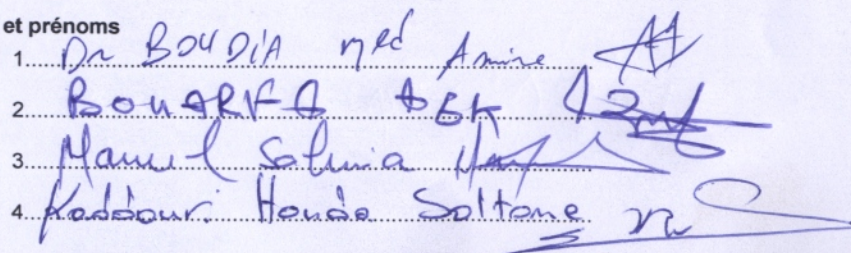 et prénoms
1. Dr BOUDIA Med Amine
2. BOUARFA AEK
3. Manuel Salmia
4. Kaddouri Houda Soltane